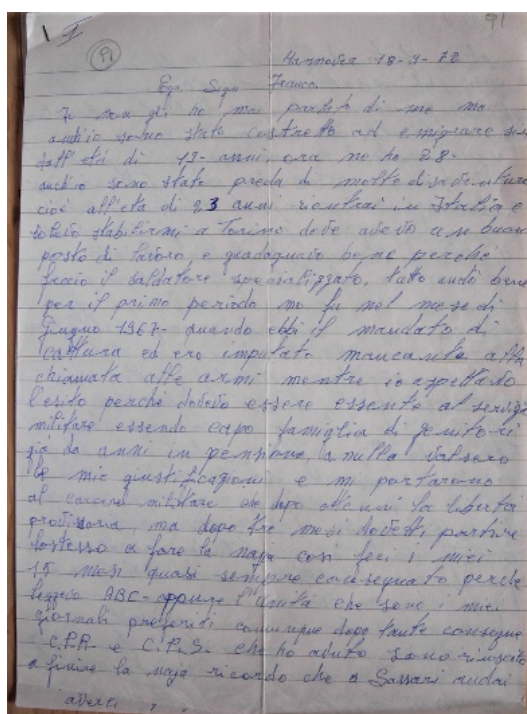 91
1 I
91
Hannover 18-9-72
Egr. Sign. Franco.
Io non gli ho mai parlato di me ma
anch'io sono stato costretto ad emigrare sin
dall'età di 19- anni, ora ne ho 28-
anch'io sono stato preda di molte disavventure
cioè all'età di 23 anni rientrai in Italia e
volevo stabilirmi a Torino dove avevo un buon
posto di lavoro, e guadagnavo bene perché
faccio il saldatore specializzato, tutto andò bene
per il primo periodo ma fu nel mese di
Giugno 1967- quando ebbi il mandato di
Cattura ed ero imputato mancante alla
chiamata alle armi mentre io aspettavo
l'esito perché dovevo essere essente al servizio
militare essendo capo famiglia di genitori
già da anni in pensione, a nulla valsero
le mie giustificazioni e mi portarono
al carcere militare che dopo ottenni la libertà
provvisoria, ma dopo tre mesi dovetti partire
lostesso a fare la naja così feci i miei
15 mesi quasi sempre consegnato perché
leggevo ABC- oppure l'unità che sono i miei
giornali preferiti comunque dopo tante consegne
C.P.R. e C.P.S. che ho avuto sono riuscito
a finire la naja ricordo che a Sassari andai